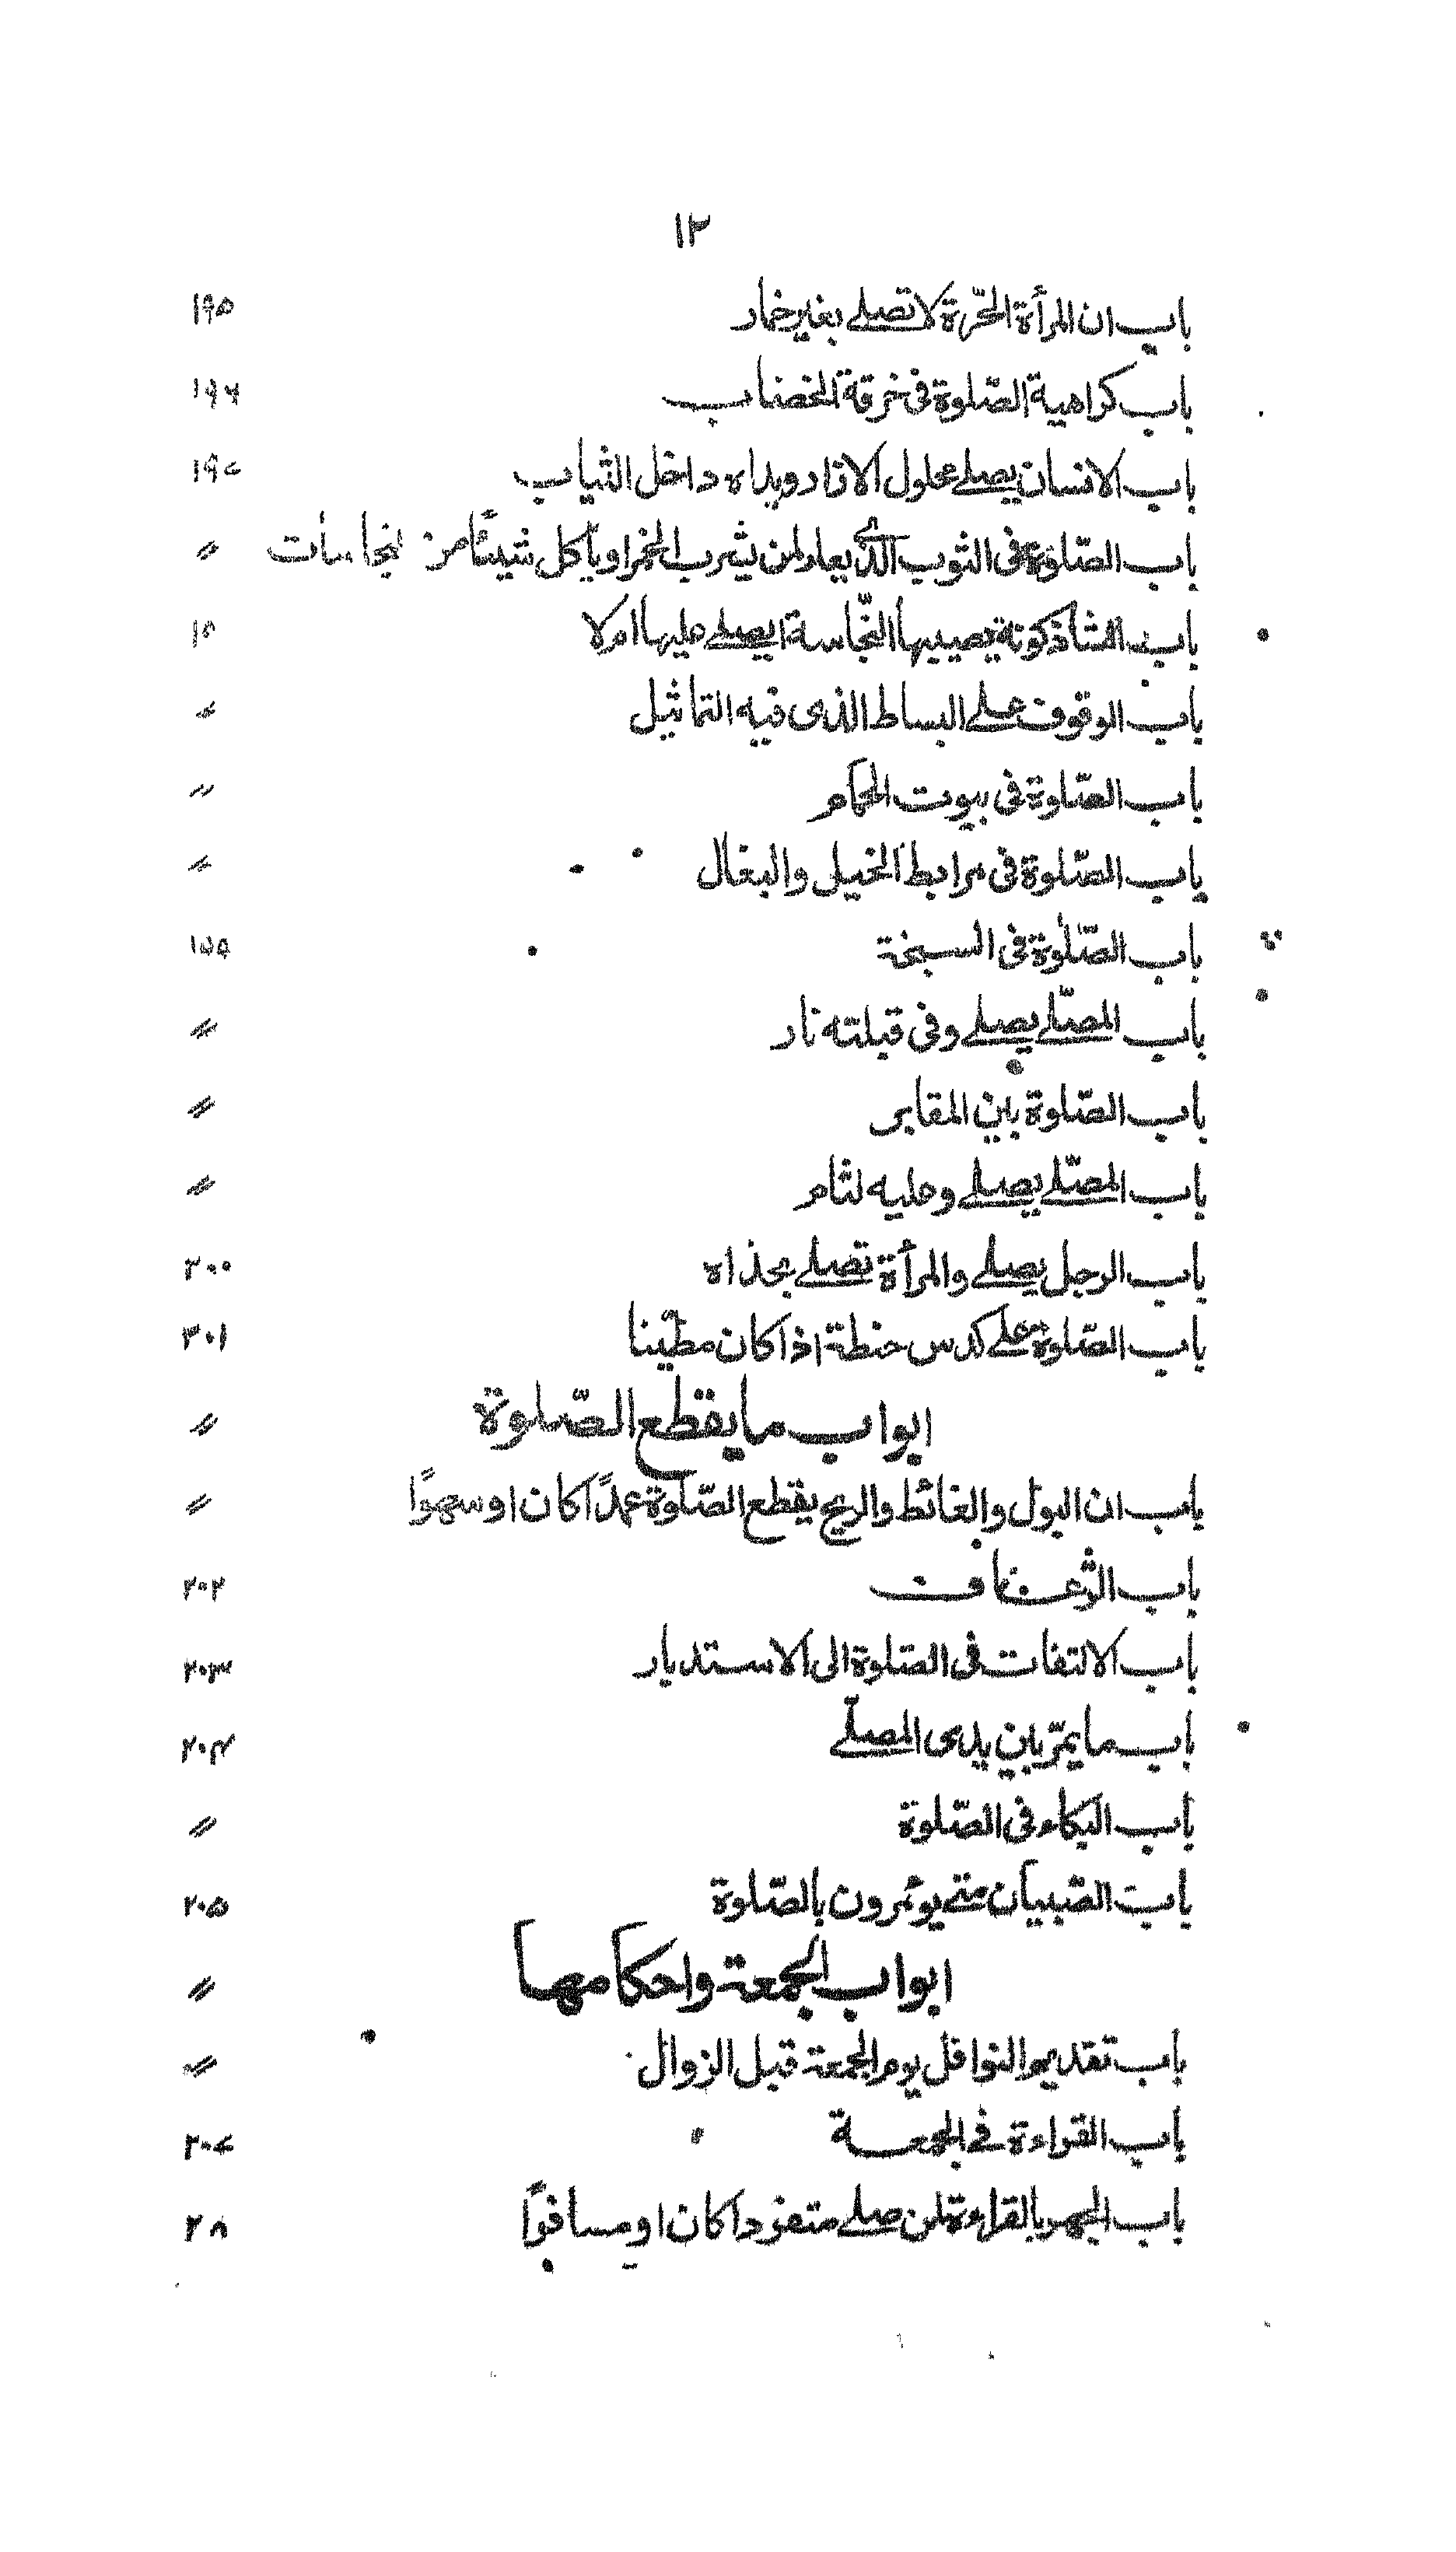 ١٢
باب ان المرأة الحرّة لا تصلى بغير خمار ١٩٥
باب كراهية الصّلوة فى خرقة الخضاب ١٩٦
باب الانسان يصلى محلول الازار ويداه داخل الثياب ١٩٧
باب الصّلوة فى الثوب الذى يعار لمن يشرب الخمر او يأكل شيئًا من نجاسات 〃
باب الشاذكونة يصيبها النّجاسة ايصلى عليها ام لا
باب الوقوف على البساط الذى فيه التماثيل 〃
باب الصّلوة فى بيوت الحمام 〃
باب الصّلوة فى مرابط الخيل والبغال 〃
باب الصّلوة فى السبخة
باب المصلّى يصلى وفى قبلته نار 〃
باب الصّلوة بين المقابر 〃
باب المصلّى يصلى وعليه لثام 〃
باب الرجل يصلى والمرأة تصلى بحذاه ٢٠٠
باب الصّلوة على كدس حنطة اذا كان مطيّنا ٢٠١
ابواب ما يقطع الصّلوة 〃
باب ان البول والغائط والريح يقطع الصّلوة عمدًا كان او سهوًا 〃
باب الرّعاف ٢٠٢
باب الالتفات فى الصّلوة الى الاستدبار ٢٠٣
باب ما يمرّ بين يدى المصلّى ٢٠٤
باب البكاء فى الصّلوة 〃
باب الصّبيان متى يؤمرون بالصّلوة ٢٠٥
ابواب الجمعة واحكامها 〃
باب تقديم النوافل يوم الجمعة قبل الزوال 〃
باب القراءة فى الجمعة ٢٠٧
باب الجهر بالقراءة لمن صلى منفردا كان او مسافرًا ٢٠٨